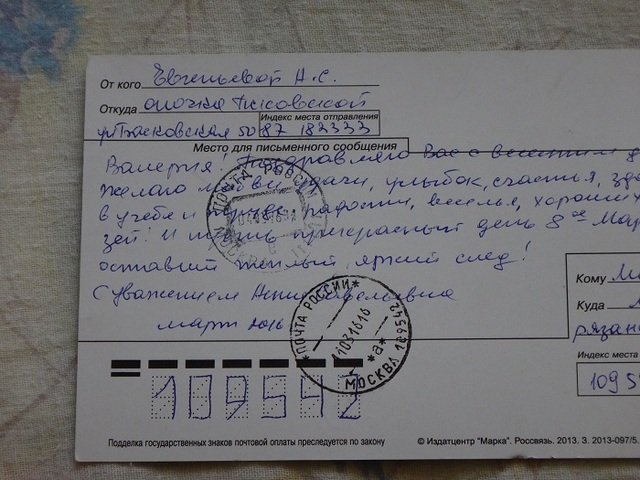 От кого Евгеньевой Н.С.
Откуда Опочка Псковской
ул Псковская 50 87 182333
Индекс места отправления
Место для письменного сообщения
Валерия! Поздравляю Вас с весенним
желаю любви, удачи, улыбок, счастья, здо
в учебе и радости, веселья, хороших
зей! И прекрасный день 8ое Мар
оставит теплый, яркий след!
С уважением
март 2016
ПОЧТА РОССИИ
МОСКВА
ПОЧТА РОССИИ
11031616
"а"
МОСКВА 109542
Кому
Куда
рязан
Индекс места
109 5
109542
Подделка государственных знаков почтовой оплаты преследуется по закону
© Издатцентр "Марка". Россвязь. 2013. З. 2013-097/5.